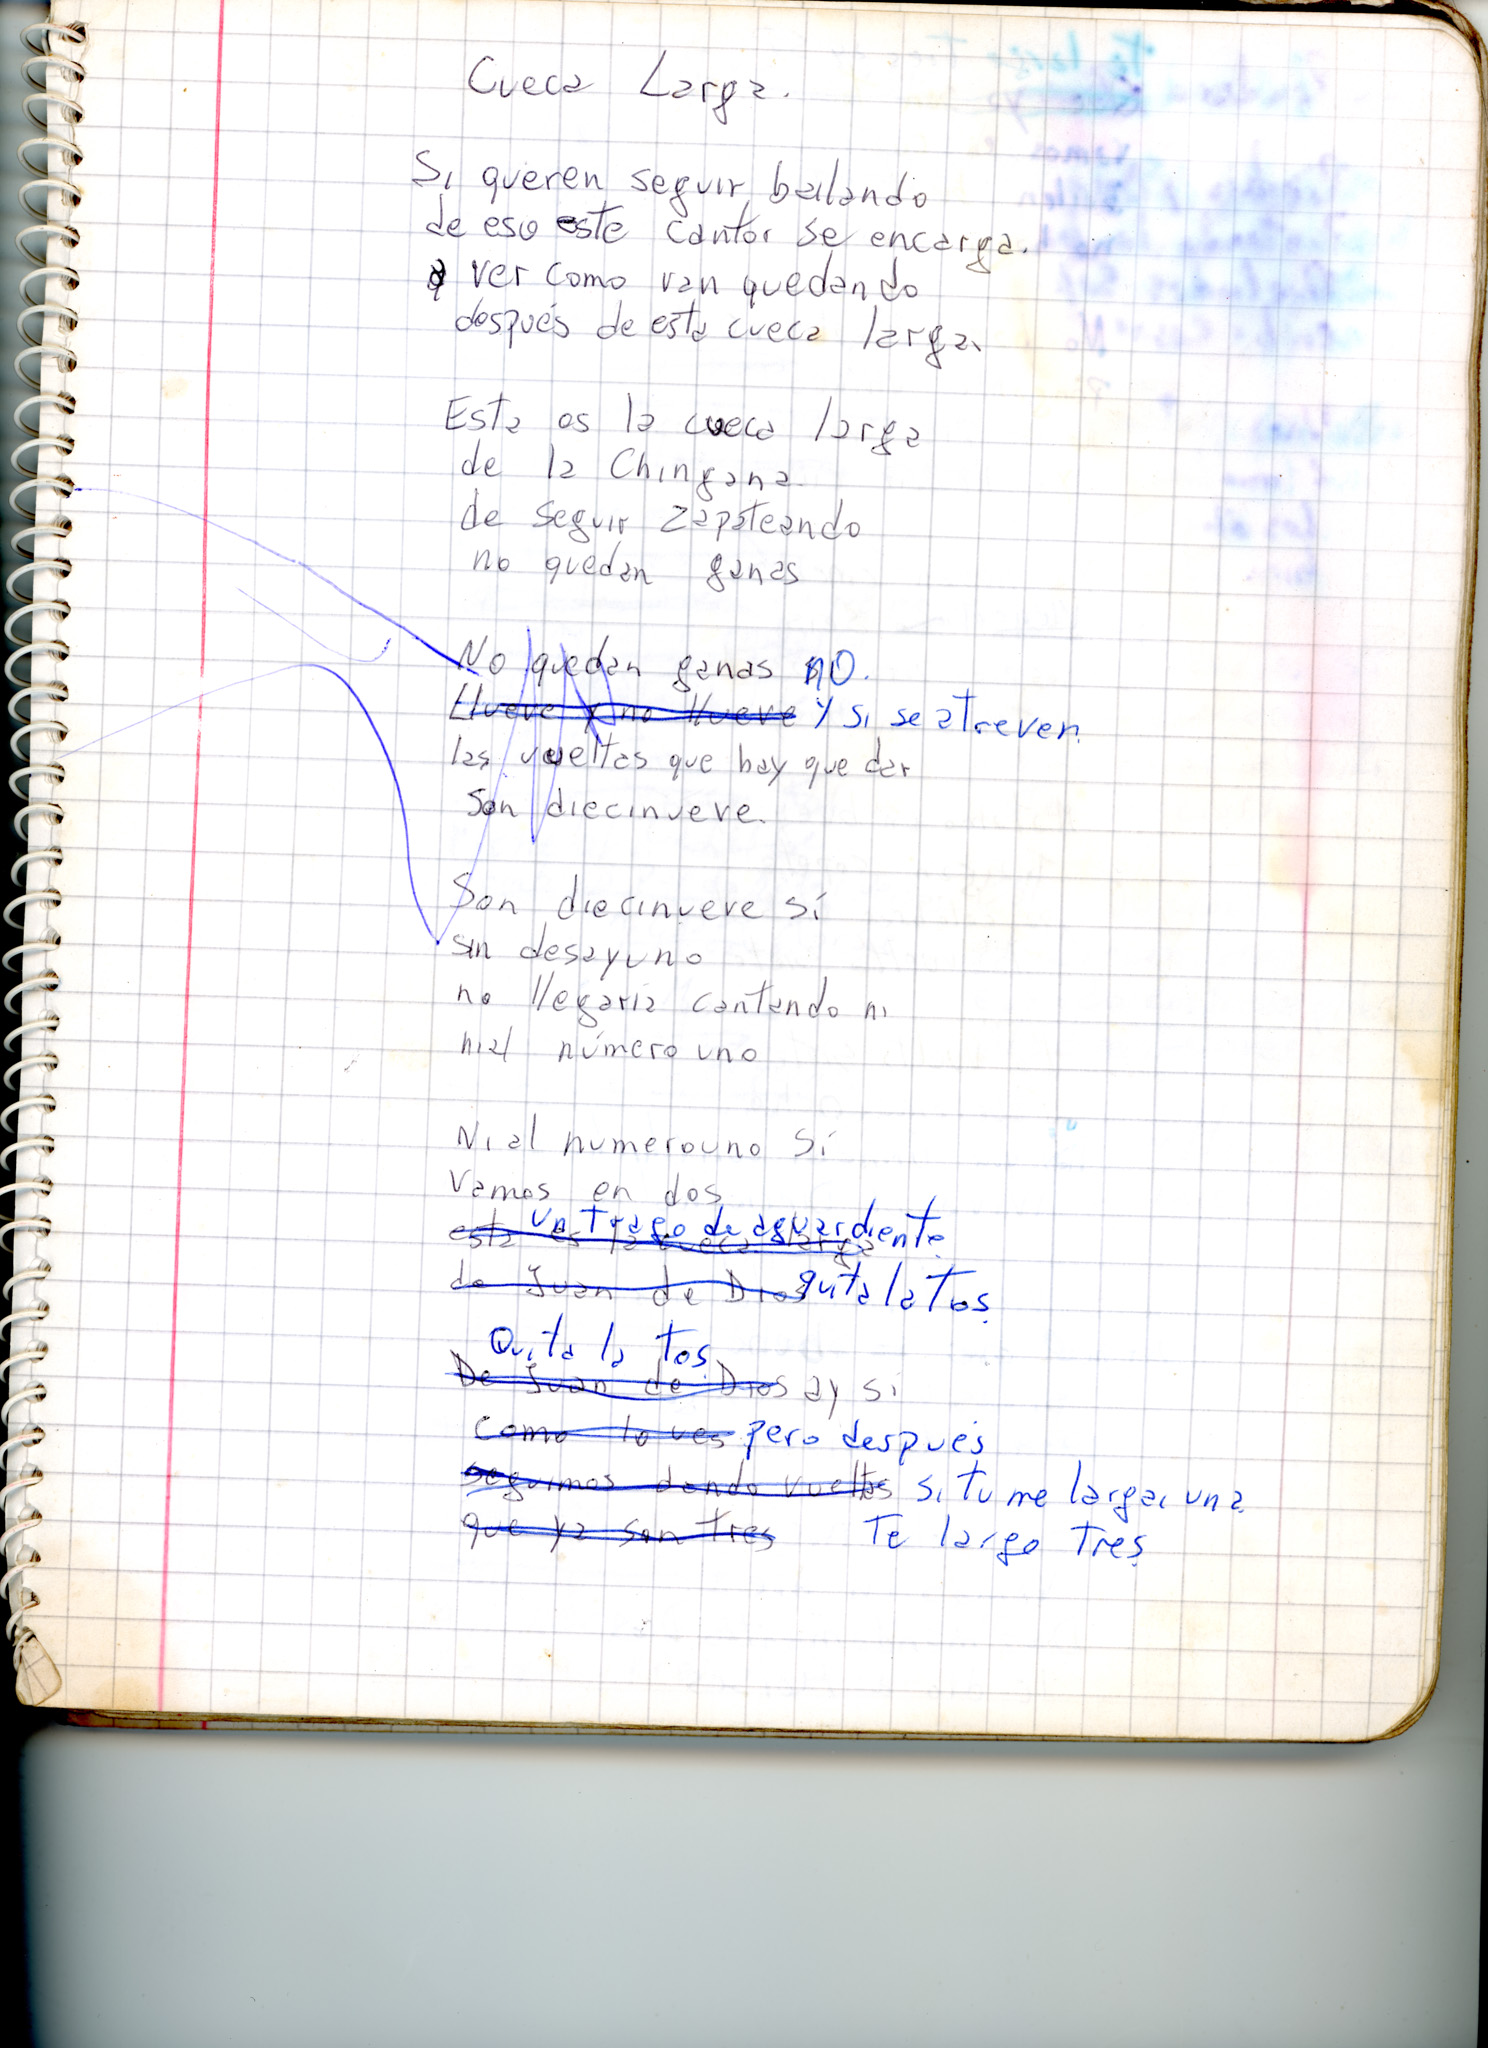 Cueca Larga.
Si queren seguir bailando
de eso este cantor se encarga.
a ver como van quedando
después de esta cueca larga.
Esta es la cueca larga
de la Chingana
de seguir zapateando
no quedan ganas
No quedan ganas no.
Llueve y no llueve y si se atreven.
las vueltas que hay que dar
son diecinueve.
Son diecinueve sí
sin desayuno
no llegaría cantando ni
nial número uno
Ni al numero uno sí
Vamos en dos
un trago de aguardiente.
esta es la cueca larga
de Juan de Dios quita la tos.
Quita la tos.
De Juan de Dios ay si
como lo ves pero después
seguimos dando vueltas si tu me largai una
que ya son tres Te largo tres.